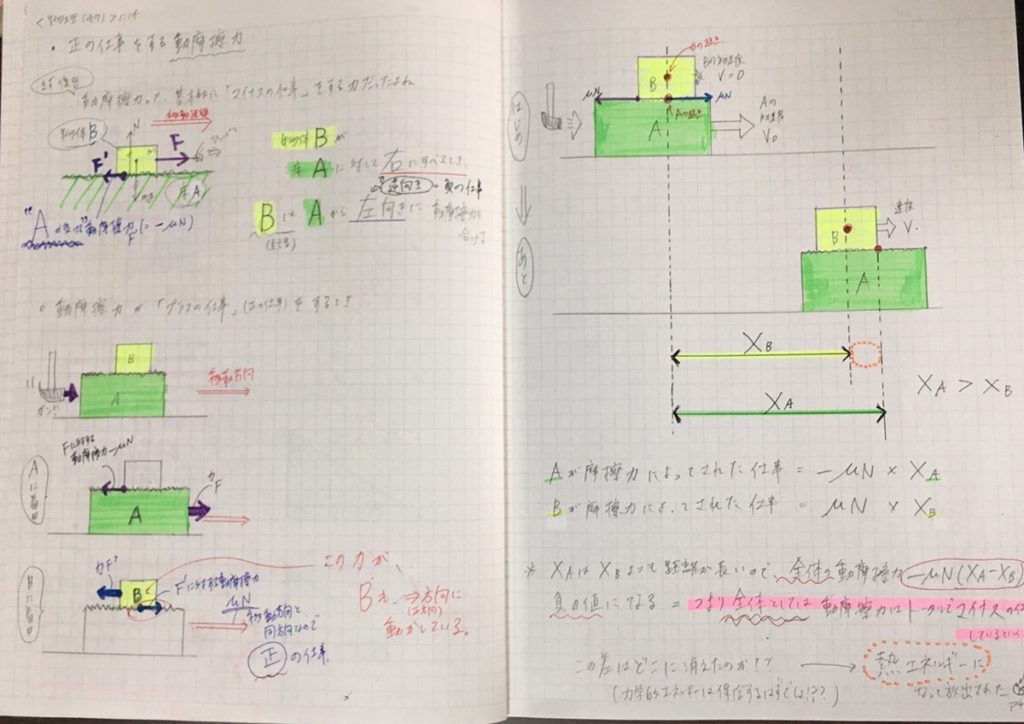 ・正の仕事をする動摩擦力
動摩擦力って、基本的に「マイナスの仕事」をする力だったよね
物体B
N
移動方向
F
F'
mg
床A
"A
動摩擦力(=-μN)
F
物体Bが
床Aに対して右にすべるとき、
逆向き 負の仕事
BはAから左向きに動摩擦力を
受ける
○ 動摩擦力が「プラスの仕事」(正の仕事)をするとき
B
A
ガン!!
移動方向
Aに着目
動摩擦力-μN
力F
A
Bに着目
力F'
B
F'に対する動摩擦力
μN
移動方向と
同方向なので
正の仕事。
この力が、
Bを、⇒方向に
(正方向)
動かしている。
はじめ
μN
B
Bの起点
Bの初速度
V=0
μN
A
Aの起点
Aの
初速度
V0
あと
B
速度
V.
A
XB
XA
XA > XB
Aが摩擦力によってされた仕事 = -μN × XA
Bが摩擦力によってされた仕事 = μN × XB
* XAはXBよりも距離が長いので、全体の動摩擦力 -μN(XA-XB)
負の値になる = つまり全体としては動摩擦力はトータルでマイナスの仕
しているといえ
この差はどこに消えたのか?? → 熱エネルギーに
(力学的エネルギーは保存するはずでは!??) なって放出された